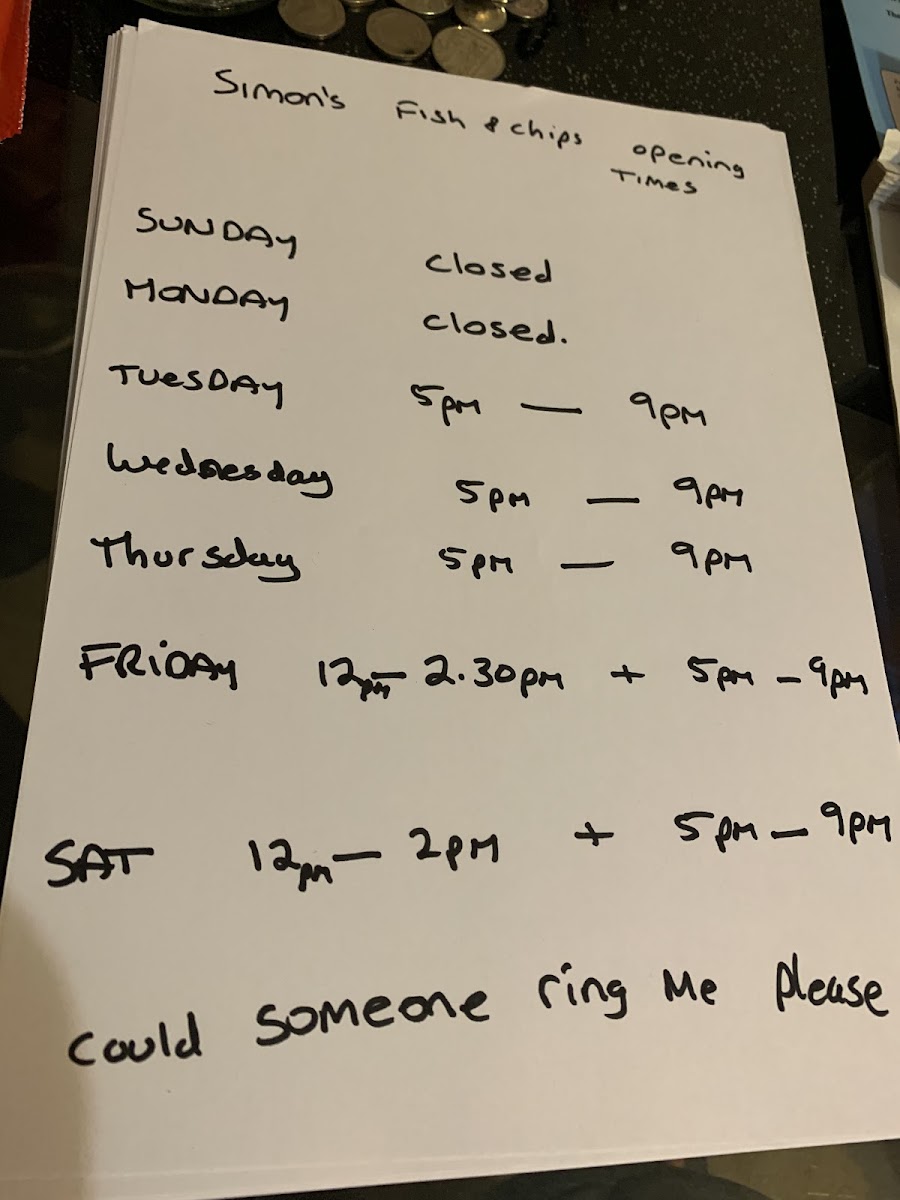 Simon's Fish & chips opening
Times
SUNDAY closed
MONDAY closed.
TUESDAY 5pm — 9pm
Wednesday 5pm — 9pm
Thursday 5pm — 9pm
FRiDAY 12pm – 2.30pm + 5pm – 9pm
SAT 12pm – 2pm + 5pm – 9pm
Could someone ring Me please